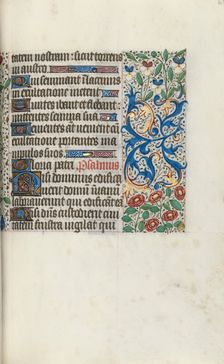 tatem nostram: sicut torrens
in austro.
Qui seminant in lacrimis
in exultatione metent.
Euntes ibant et flebant
mittentes semina sua.
uenientes autem uenient cum
exultatione portantes ma
nipulos suos.
Gloria patri. Psalmus
Nisi dominus edifica
uerit domum uanum
laborauerunt qui edificant ea
Nisi dominus custodierit ciui
tatem frustra uigilat qui